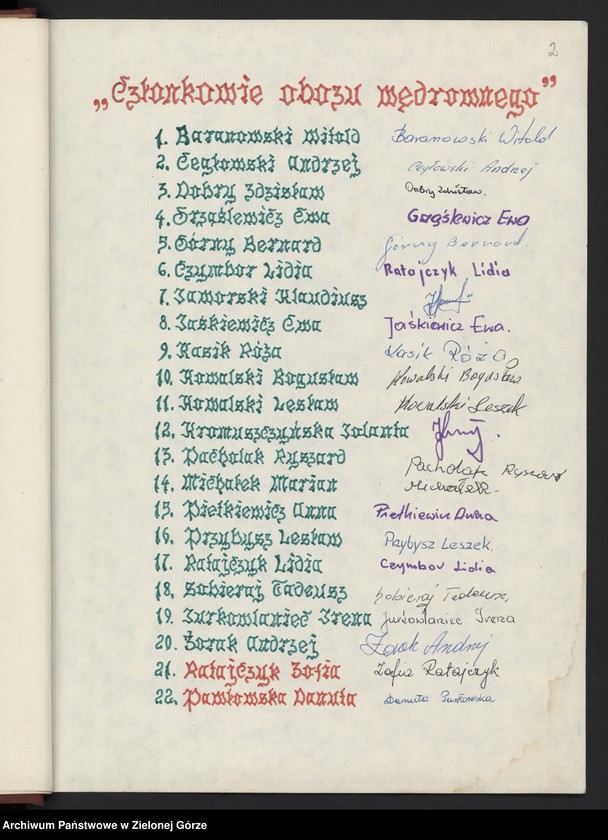 2
„Członkowie obozu wędrownego”
1. Baranowski Witold Baranowski Witold
2. Cegłowski Andrzej Cegłowski Andrzej
3. Dobry Zdzisław Dobry Zdzisław.
4. Grząślewicz Ewa Grząślewicz Ewa
5. Górny Bernard Górny Bernard.
6. Czymbor Lidia Ratajczyk Lidia
7. Jaworski Klaudiusz
8. Jaśkiewicz Ewa Jaśkiewicz Ewa.
9. Kasik Róża Kasik Róża
10. Kowalski Bogusław Kowalski Bogusław
11. Kowalski Lesław Kowalski Leszek
12. Kromuszczyńska Jolanta
13. Pacholak Ryszard Pacholak Ryszard
14. Michałek Marian Michałek.
15. Pietkiewicz Anna Pietkiewicz Anna
16. Przybysz Lesław Przybysz Leszek.
17. Ratajczyk Lidia Czymbor Lidia
18. Sobieraj Tadeusz Sobieraj Tadeusz,
19. Jurkowlaniec Irena Jurkowlaniec Irena
20. Żorak Andrzej Żorak Andrzej
21. Ratajczyk Zofia Zofia Ratajczyk
22. Pawłowska Danuta Danuta Pawłowska
Archiwum Państwowe w Zielonej Górze